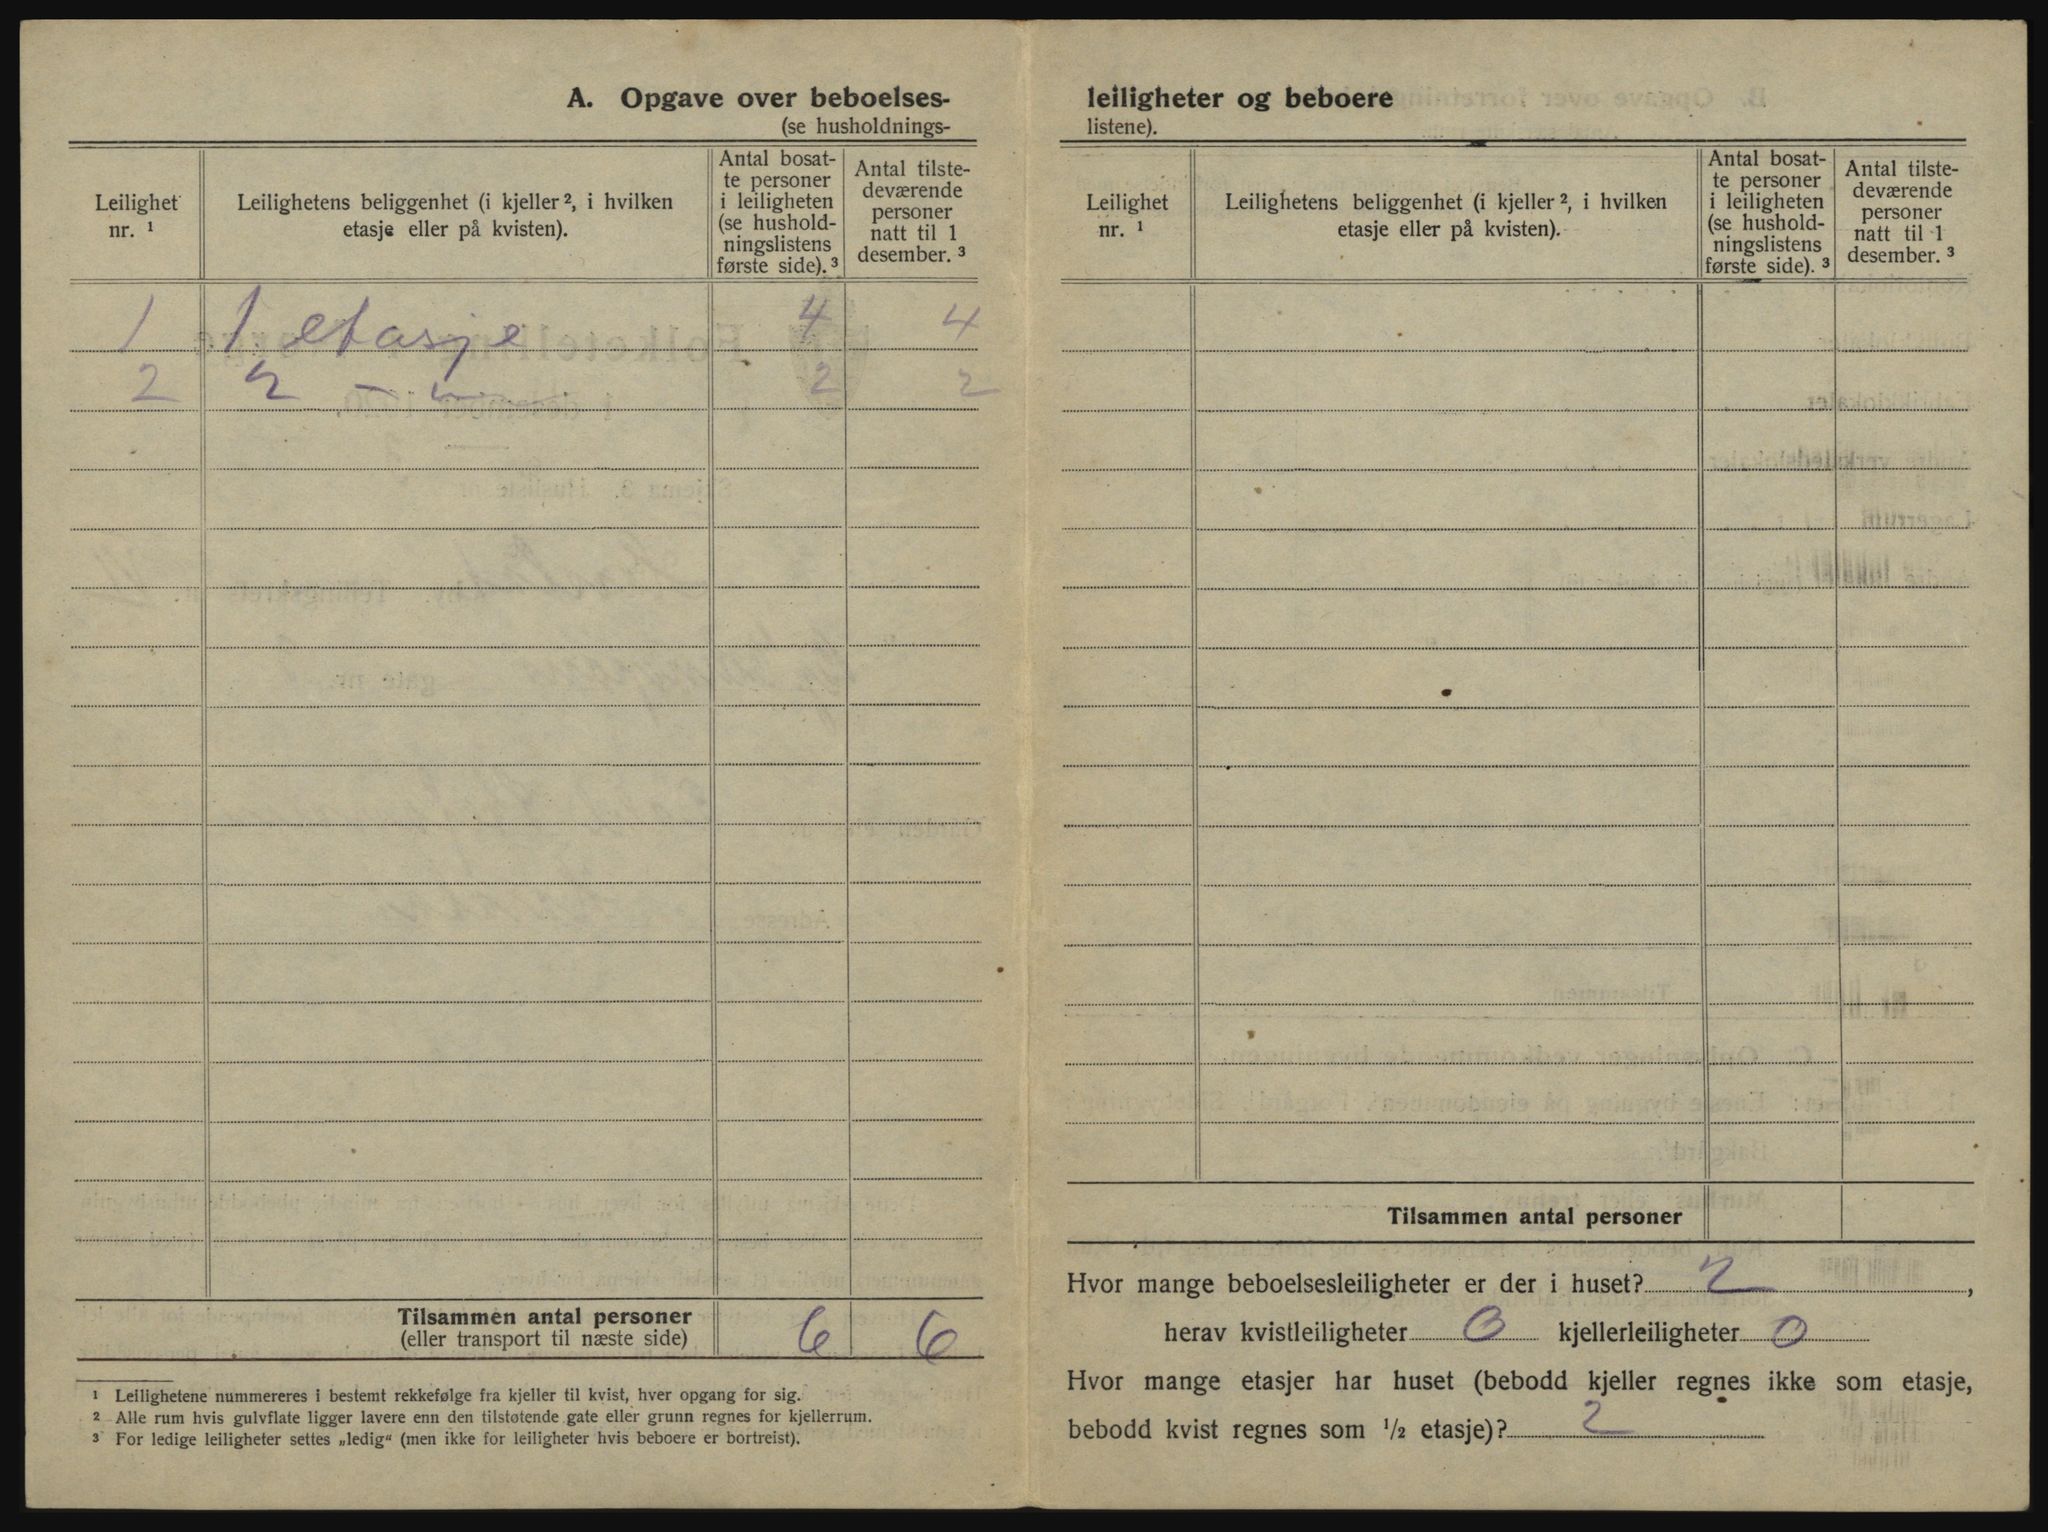 A. Opgave over beboelses-
(se husholdnings-
Leilighet nr. ¹
Leilighetens beliggenhet (i kjeller ², i hvilken etasje eller på kvisten).
Antal bosat-
te personer
i leiligheten
(se hushold-
ningslistens
første side). ³
Antal tilste-
deværende
personer
natt til 1
desember. ³
1 1 etasje 4 4
2 2 — „ 2 2
Tilsammen antal personer 6 6
(eller transport til næste side)
¹ Leilighetene nummereres i bestemt rekkefølge fra kjeller til kvist, hver opgang for sig.
² Alle rum hvis gulvflate ligger lavere enn den tilstøtende gate eller grunn regnes for kjellerrum.
³ For ledige leiligheter settes „ledig“ (men ikke for leiligheter hvis beboere er bortreist).
leiligheter og beboere
listene).
Leilighet
nr. ¹
Leilighetens beliggenhet (i kjeller ², i hvilken
etasje eller på kvisten).
Antal bosat-
te personer
i leiligheten
(se hushold-
ningslistens
første side). ³
Antal tilste-
deværende
personer
natt til 1
desember. ³
Tilsammen antal personer
Hvor mange beboelsesleiligheter er der i huset? 2,
herav kvistleiligheter 0 kjellerleiligheter 0
Hvor mange etasjer har huset (bebodd kjeller regnes ikke som etasje,
bebodd kvist regnes som ½ etasje)? 2